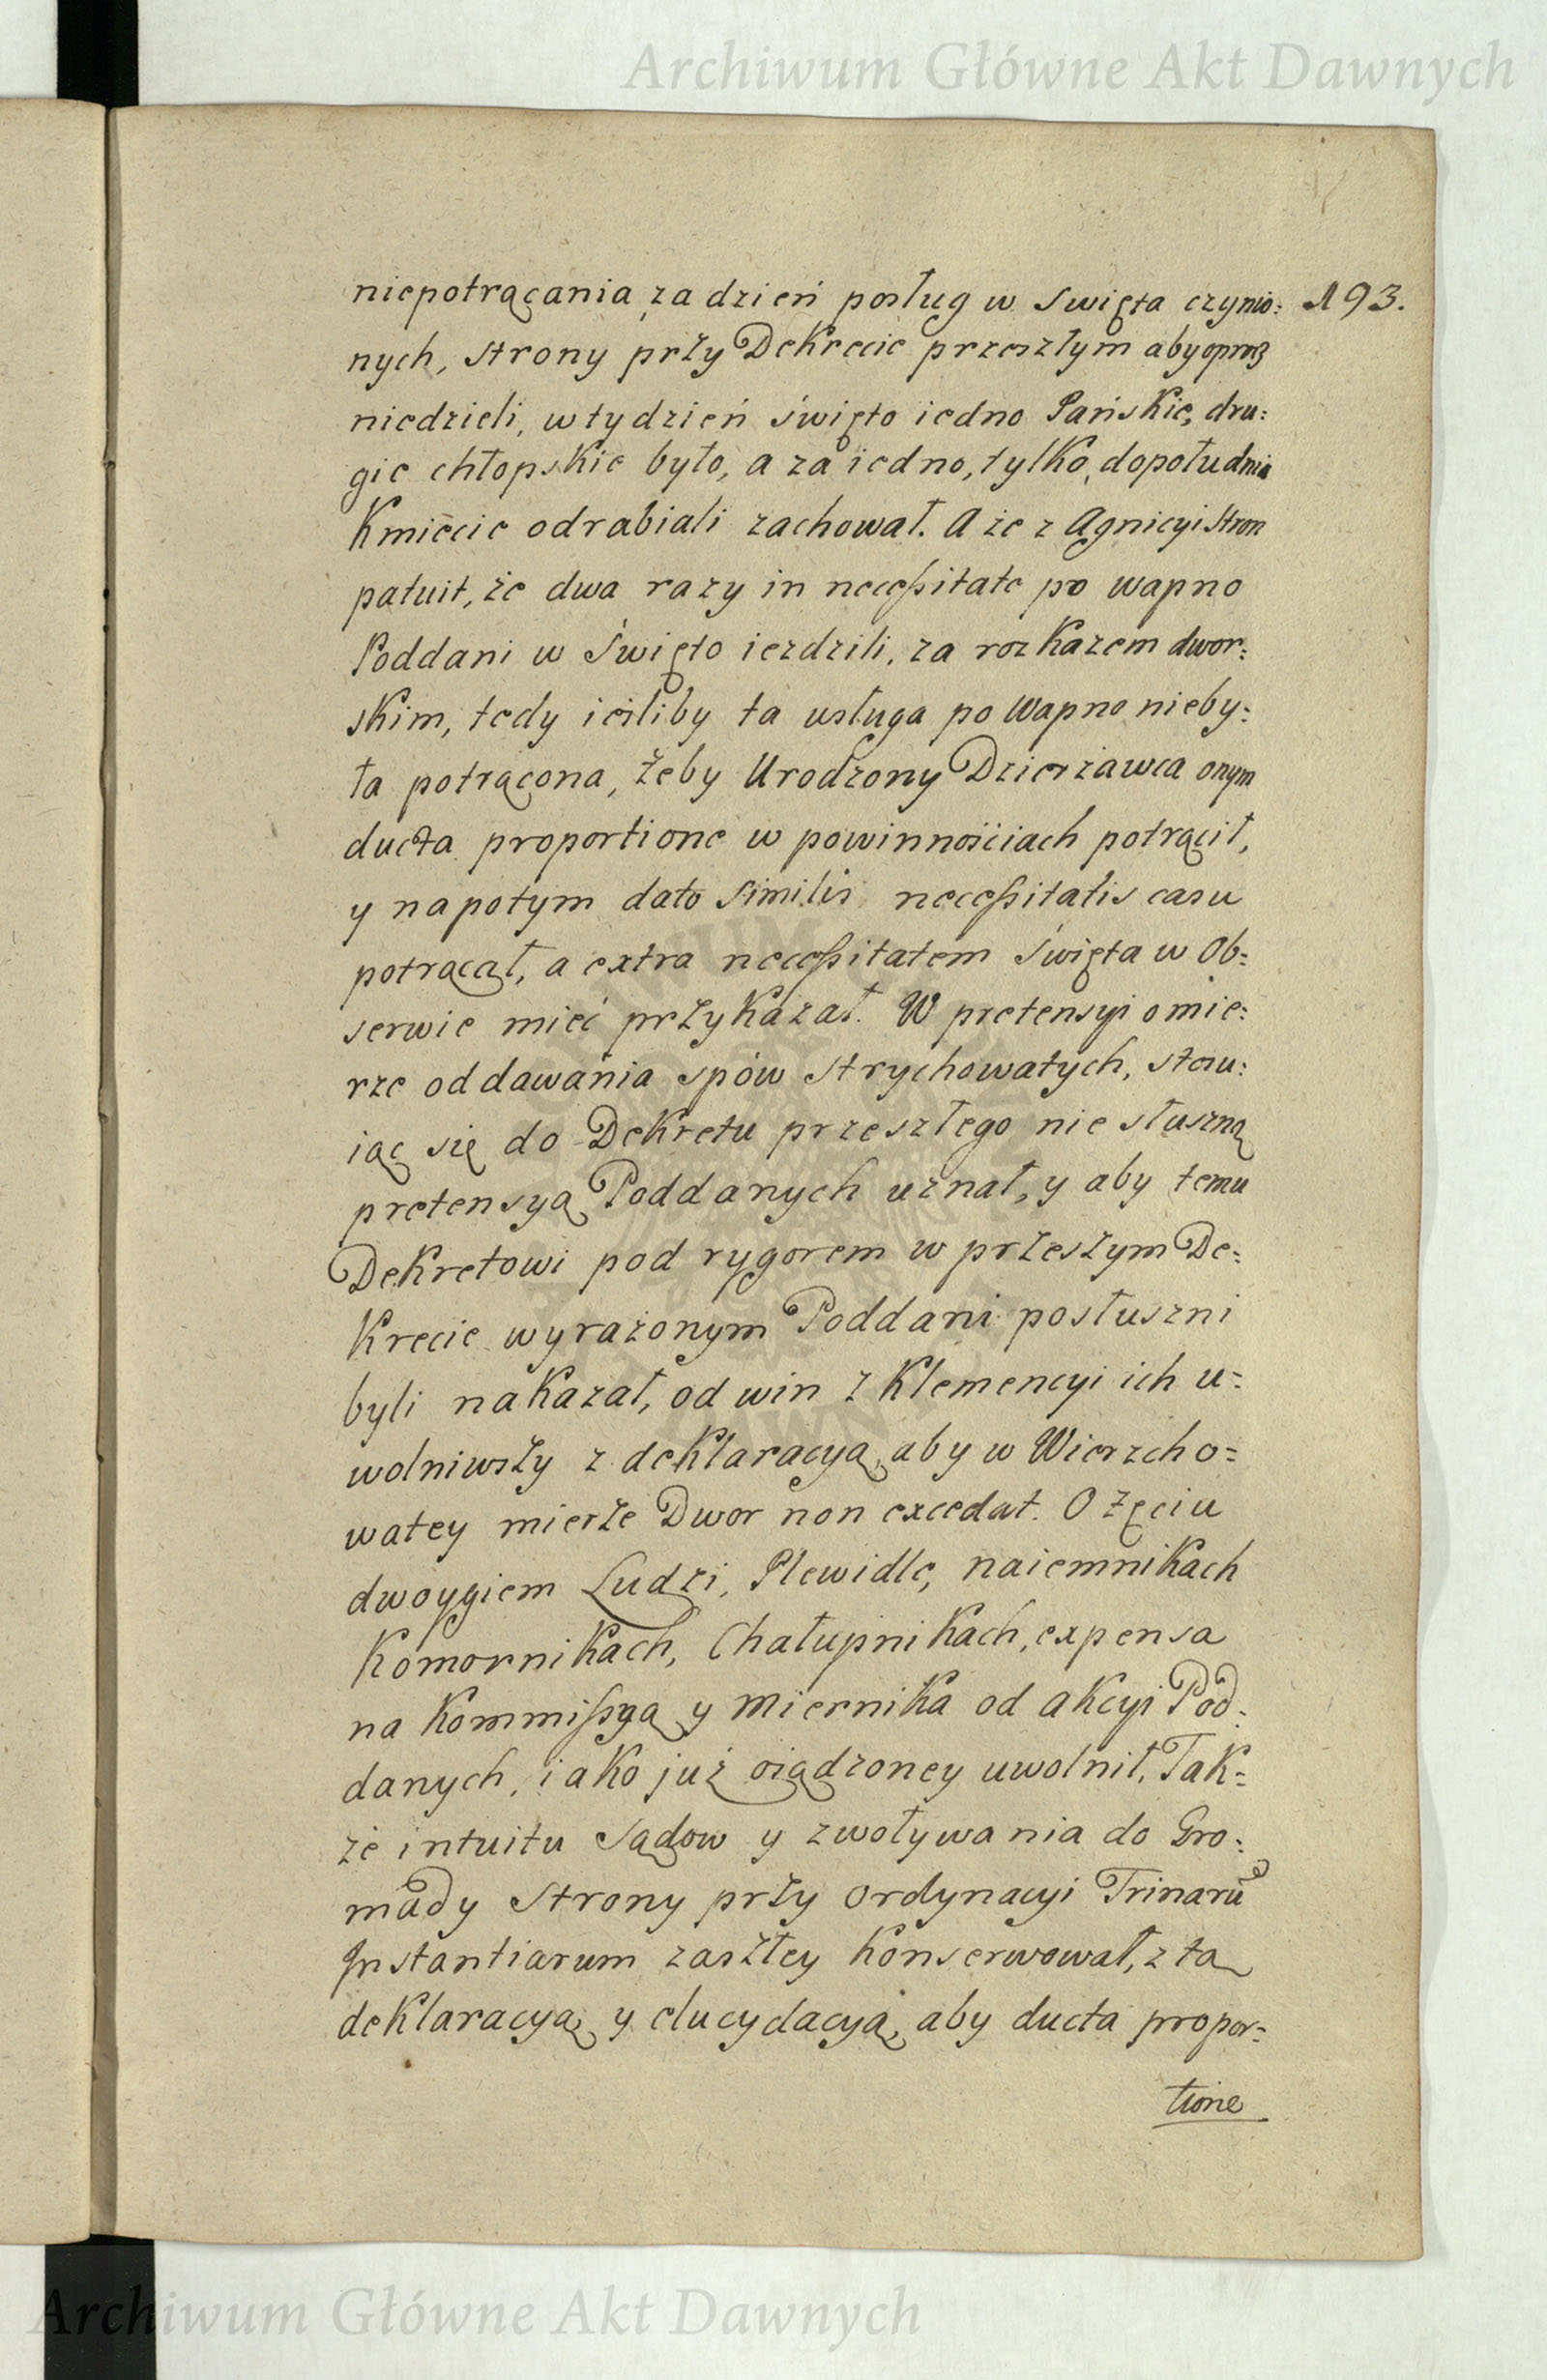 Archiwum Główne Akt Dawnych
193.
niepotrącania za dzień posług w swięta czynio:
nych, strony przy Dekrecie przeszłym aby oprocz
niedzieli, w tydzień święto iedno Pańskie, dru:
gie chłopskie było, a za iedno, tylko, dopołudnia
Kmiecie odrabiali zachował. A że z Agnicyi Stron
patuit, że dwa razy in necessitate po wapno
Poddani w Święto iezdzili, za rozkazem dwor:
skim, tedy iesliby ta usługa po Wapno nieby:
ła potrącona, żeby Urodzony Dzierżawca onym
ducta proportione w powinnościach potrącił,
y napotym dato similis necessitatis casu
potrącał, a extra necessitatem Święta w Ob:
serwie mieć przykazał. W pretensyi o mie:
rze oddawania spów strychowatych, stosu:
iąc się do Dekretu przeszłego nie słuszną
pretensyą Poddanych uznał, y aby temu
Dekretowi pod rygorem w przeszłym De:
Krecie wyrażonym Poddani posłuszni
byli nakazał, od win z Klemencyi ich u=
wolniwszy z deklaracyą, aby w Wierzcho=
watey mierze Dwor non excedat. O zęciu
dwoygiem Ludzi, Plewidle, naiemnikach
Komornikach, Chałupnikach, expensa
na Kommissyą y Miernika od akcyi Pod:
danych, iako już osądzoney uwolnił. Tak=
że intuitu Sądow y zwoływania do Gro:
mady Strony przy Ordynacyi Trinarū
Instantiarum zaszłey Konserwował, z tą
deklaracyą y elucydacyą, aby ducta propor=
tione
Archiwum Główne Akt Dawnych